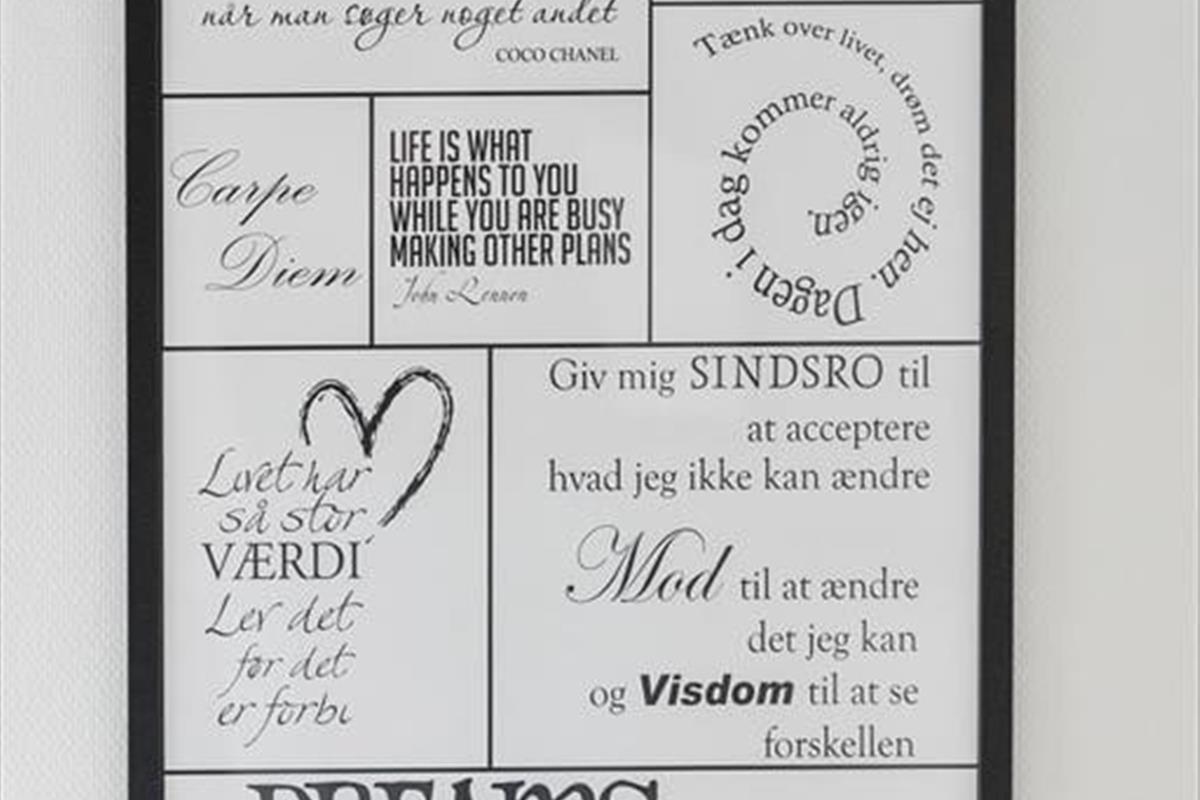 når man søger noget andet
COCO CHANEL
Tænk over livet, drøm det ej hen. Dagen i dag kommer aldrig igen.
Carpe
Diem
LIFE IS WHAT
HAPPENS TO YOU
WHILE YOU ARE BUSY
MAKING OTHER PLANS
John Lennon
Livet har
så stor
VÆRDI
Lev det
før det
er forbi
Giv mig SINDSRO til
at acceptere
hvad jeg ikke kan ændre
Mod til at ændre
det jeg kan
og Visdom til at se
forskellen
DREAMS